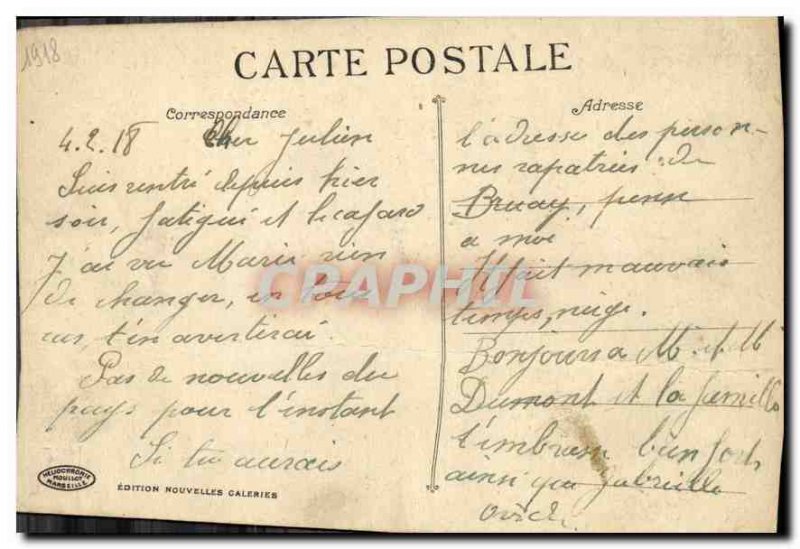 1918
CARTE POSTALE
Correspondance
Adresse
4.2.18 Cher Julien
Suis rentré depuis hier
soir, fatigué et le cafard
J'ai vu Marie rien
de changer, en tous
cas, t'en avertirai.
Pas de nouvelles du
pays pour l'instant
Si tu aurais
l'adresse des person-
nes rapatriées de
Bruay, pense
a moi
Il fait mauvais
temps, neige.
Bonjours a M et M
Dumont et la famille
t'embrasse bien fort
ainsi que Gabrielle
CPAPHIL
HELIOCHROMIE
MOUILLOT
MARSEILLE
EDITION NOUVELLES GALERIES